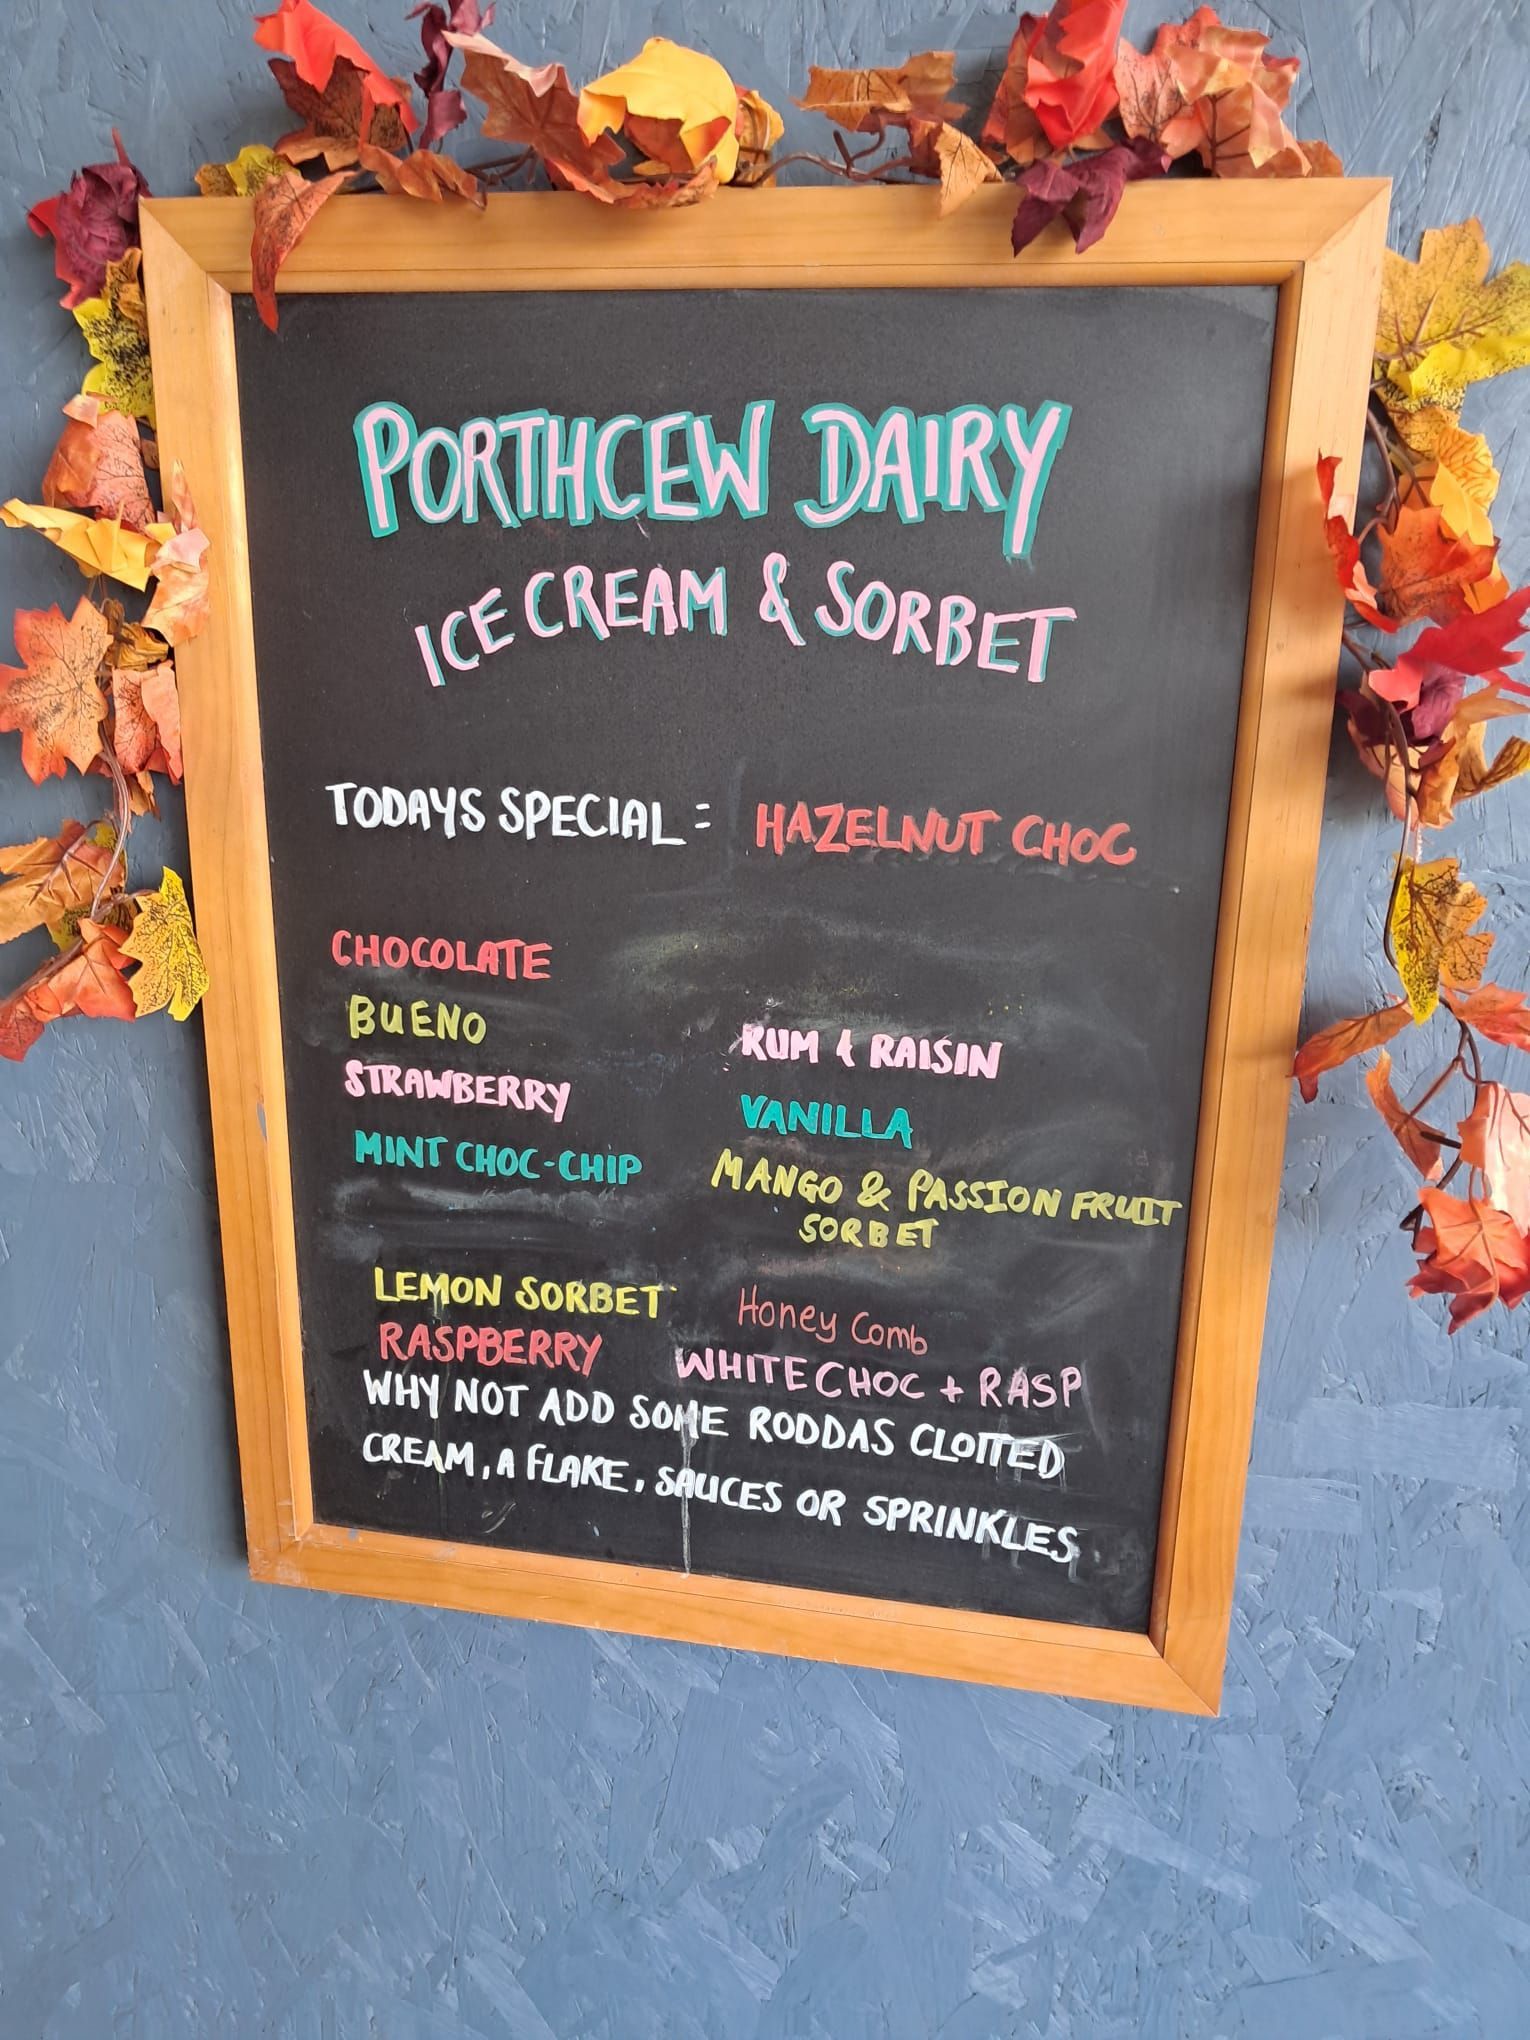 PORTHCEW DAIRY
ICE CREAM & SORBET
TODAYS SPECIAL = HAZELNUT CHOC
CHOCOLATE
BUENO
STRAWBERRY
MINT CHOC-CHIP
LEMON SORBET
RASPBERRY
RUM & RAISIN
VANILLA
MANGO & PASSION FRUIT
SORBET
Honey Comb
WHITE CHOC + RASP
WHY NOT ADD SOME RODDAS CLOTTED
CREAM, A FLAKE, SAUCES OR SPRINKLES